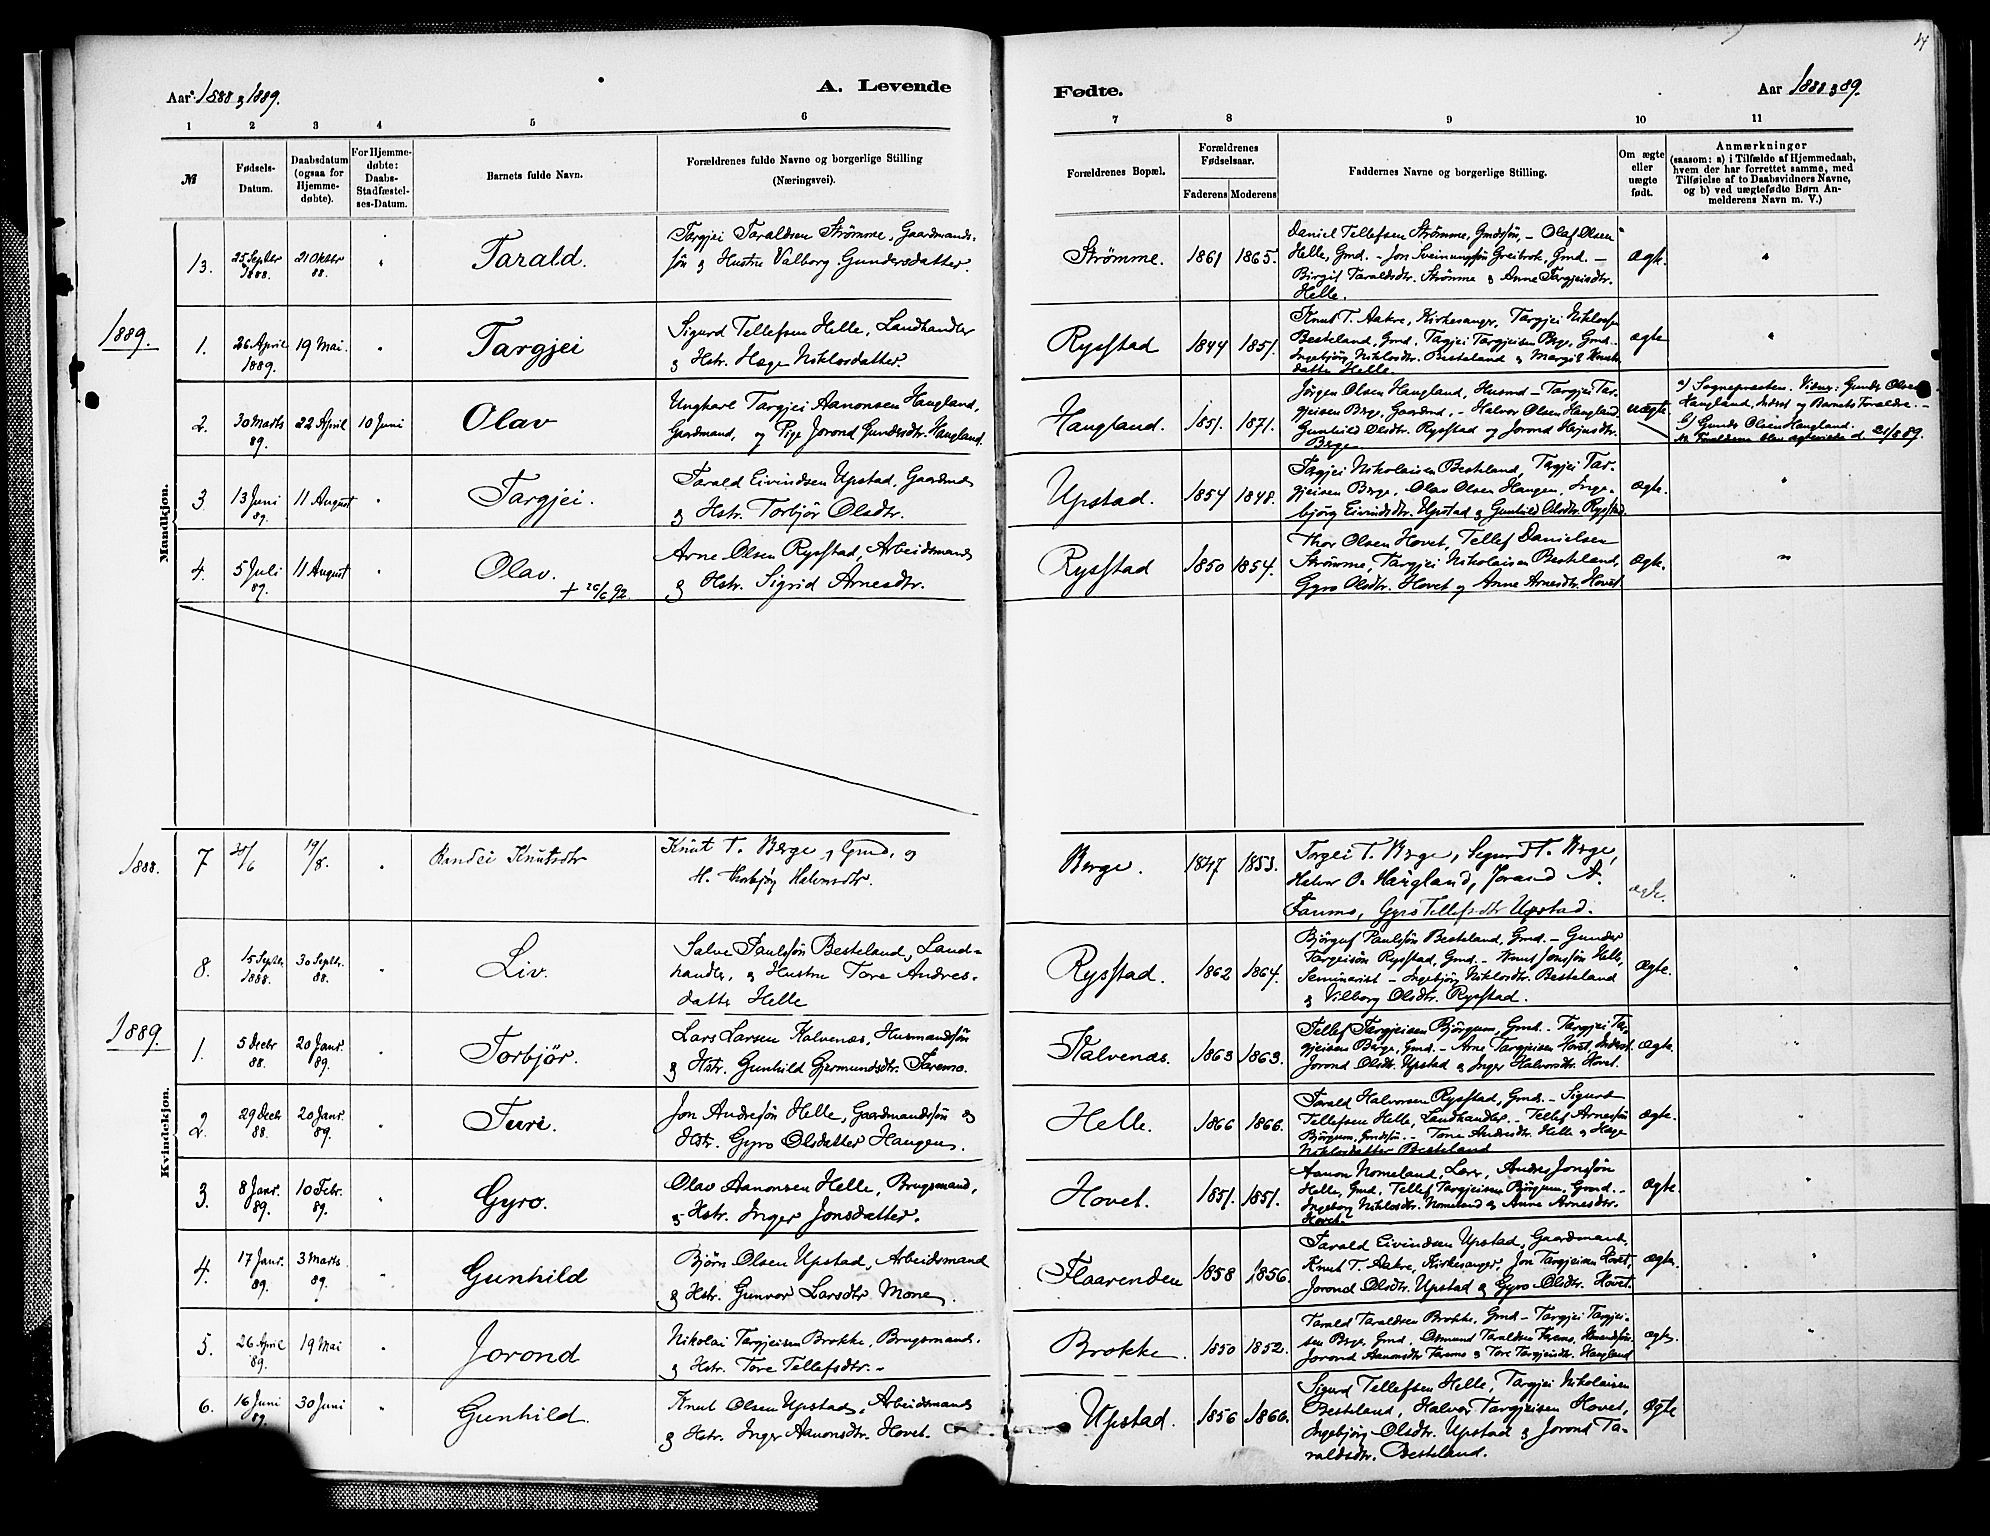 4
Aar 1888 & 1889.
A. Levende
Fødte.
Aar 1888 & 89.
1 2 3 4 5 6 7 8 9 10 11
№
Fødsels-
Datum.
Daabsdatum
(ogsaa for
Hjemme-
døbte).
For Hjemme-
døbte:
Daabs-
Stadfæstel-
ses-Datum.
Barnets fulde Navn.
Forældrenes fulde Navne og borgerlige Stilling
(Næringsvei).
Forældrenes Bopæl.
Forældrenes
Fødselsaar.
Faderens Moderens
Faddernes Navne og borgerlige Stilling.
Om ægte
eller
uægte
født.
Anmærkninger
(saasom: a) i Tilfælde af Hjemmedaab,
hvem der har forrettet samme, med
Tilføielse af to Daabsvidners Navne,
og b) ved uægtefødte Børn An-
melderens Navn m. V.)
Mandkjøn.
13. 25 Septbr 1888. 21 Oktbr 88. " Tarald.
Targjei Taraldsen Strømme, Gaardmands-
søn & Hustru Valborg Gundersdatter.
Strømme. 1861 1865.
Daniel Tellefsen Strømme, Gmdssøn, - Olaf Olsen
Helle, Gmd. - Jon Sveinungsøn Greibrok, Gmd. -
Birgit Taraldsdtr. Strømme & Anne Targjeisdtr.
Helle.
Ægte. "
1889.
1. 26 April 1889. 19 Mai. " Targjei
Sigurd Tellefsen Helle, Landhandler
& Hstr. Hæge Niklosdatter.
Rysstad 1844 1851.
Knut T. Aakre, Kirkesanger, Targjei Niklossen
Besteland, Gmd. Targjei Targjeisen Berge, Gmd. -
Ingebjørg Niklosdtr. Besteland & Margit Knuts-
datter Helle.
ægte "
2. 30 Marts 89. 22 April 10 Juni Olav
Ungkarl Targjei Aanonsen Haugland,
Gaardmand, og Pige Jorond Gundersdtr. Haugland.
Haugland. 1851. 1871.
Jørgen Olsen Haugland, Husmd - Targjei Tar-
gjeisen Berge, Gaardmd, - Halvor Olsen Haugland
Gunhild Olsdtr. Rysstad og Jorond Hæjusdtr.
Berge
uægte
a) Sognepræsten. Vidner: Gunder Olsen
Haugland, Inderst og Barnets Forældre. -
b) Gunder Olsen Haugland.
3 13 Juni 89. 11 August " Targjei.
Tarald Eivindsen Upstad, Gaardmd
& Hstr. Torbjør Olsdtr.
Upstad. 1854 1848.
Targjei Nikolaisen Besteland, Targjei Tar-
gjeisen Berge, Olav Olsen Haugen, Inge-
bjørg Eivindsdtr. Upstad & Gunhild Olsdtr. Rysstad.
Ægte. "
4. 5 Juli 89. 11 August " Olav.
+ 26/6 92.
Arne Olsen Rysstad, Arbeidsmand
& Hstr. Sigrid Arnesdtr.
Rysstad 1850 1854.
Thor Olsen Hovet, Tellef Danielsen
Strømme, Targjei Nikolaisen Besteland,
Gyro Olsdtr. Hovet og Anne Arnesdtr. Hovet
Ægte. "
Kvindekjøn.
1888.
7 /6 19/8. " Randei Knutsdtr
Knut T. Berge, Gmd, og
H. Thorbjør Halvorsdtr.
Berge. 1847 1853.
Torgei T. Berge, Segurd T. Berge,
Halvor O. Haugland, Jorand A.
Farmo, Gyro Tellefsdtr Upstad.
ægte. "
8. 15 Septbr. 1888. 30 Septbr. 88. " Liv.
Salve Paulssøn Besteland, Land-
handler, & Hustru Tore Andres-
datter Helle
Rysstad. 1862 1864.
Bjørguf Paulssøn Besteland, Gmd. - Gunder
Targeisøn Rysstad, Gmd. - Knut Jonssøn Helle,
Seminarist - Ingebjørg Niklosdtr. Besteland
& Vilborg Olsdtr. Rysstad.
Ægte. "
1889.
1. 5 Decbr 88. 20 Janr. 89. " Torbjør.
Lars Larsen Kalvenæs, Husmandssøn
& Hstr. Gunhild Gjermundsdtr. Faremo.
Kalvenæs. 1863 1863.
Tellef Targjeisen Bjørgum, Gmd. - Targjei Tar-
gjeisen Berge, Gmd. - Arne Targjeisen Hovet, Inderst.
Jorond Olsdtr. Upstad & Inger Halvorsdtr. Hovet.
ægte. "
2. 29 Decbr 88. 20 Janr. 89. " Turi.
Jon Andresøn Helle, Gaardmandssøn &
Hstr. Gyro Olsdatter Haugen.
Helle. 1866 1866.
Tarald Halvorsen Rysstad, Gmd. - Sigurd
Tellefsen Helle, Landhandler. - Tellef Arnessøn
Bjørgum, Gmdssøn. - Tone Andresdtr. Helle & Hæge
Niklosdatter Besteland
ægte. "
3. 8 Janr. 89. 10 Febr. 89. " Gyro.
Olav Aanonsen Helle, Brugsmand,
& Hstr. Inger Jonsdatter.
Hovet. 1851. 1851.
Aanon Nomeland, Lærer, Andres Jonssøn
Helle, Gmd, Tellef Targjeisen Bjørgum, Gmd. -
Ingeborg Niklosdtr. Nomeland & Anne Arnesdtr.
Hovet.
ægte. "
4. 17 Janr. 89. 3 Marts 89. " Gunhild
Bjørn Olsen Upstad, Arbeidsmand
& Hstr. Gunvor Larsdtr. Mone.
Flaarenden 1858 1856.
Tarald Eivindsen Upstad, Gaardmand,
Knut T. Aakre, Kirkesanger, Jon Targjeisen Hovet,
Jorond Olsdtr. Upstad & Gyro Olsdtr. Hovet.
ægte. "
5. 26 April 89. 19 Mai " Jorond
Nikolai Targjeisen Brokke, Brugsmand.
& Hstr. Tore Tellefsdtr. -
Brokke. 1850 1852.
Tarald Taraldsen Brokke, Gmd - Targjei Targjei-
sen Berge, Gmd. - Osmund Taraldsen Farmo, Husmdssøn,
Jorond Aanonsdtr Farmo & Tore Targjeisdtr. Haugland
ægte. "
6. 16 Juni 89. 30 Juni " Gunhild.
Knut Olsen Upstad, Arbeidsmand
& Hstr. Inger Aanonsdtr. Hovet.
Upstad. 1856 1866.
Sigurd Tellefsen Helle, Targjei Nikolaisen
Besteland, Halvor Targjeisen Hovet,
Ingebjørg Olsdtr. Upstad & Jorond Ta-
raldsdtr. Besteland.
Ægte "